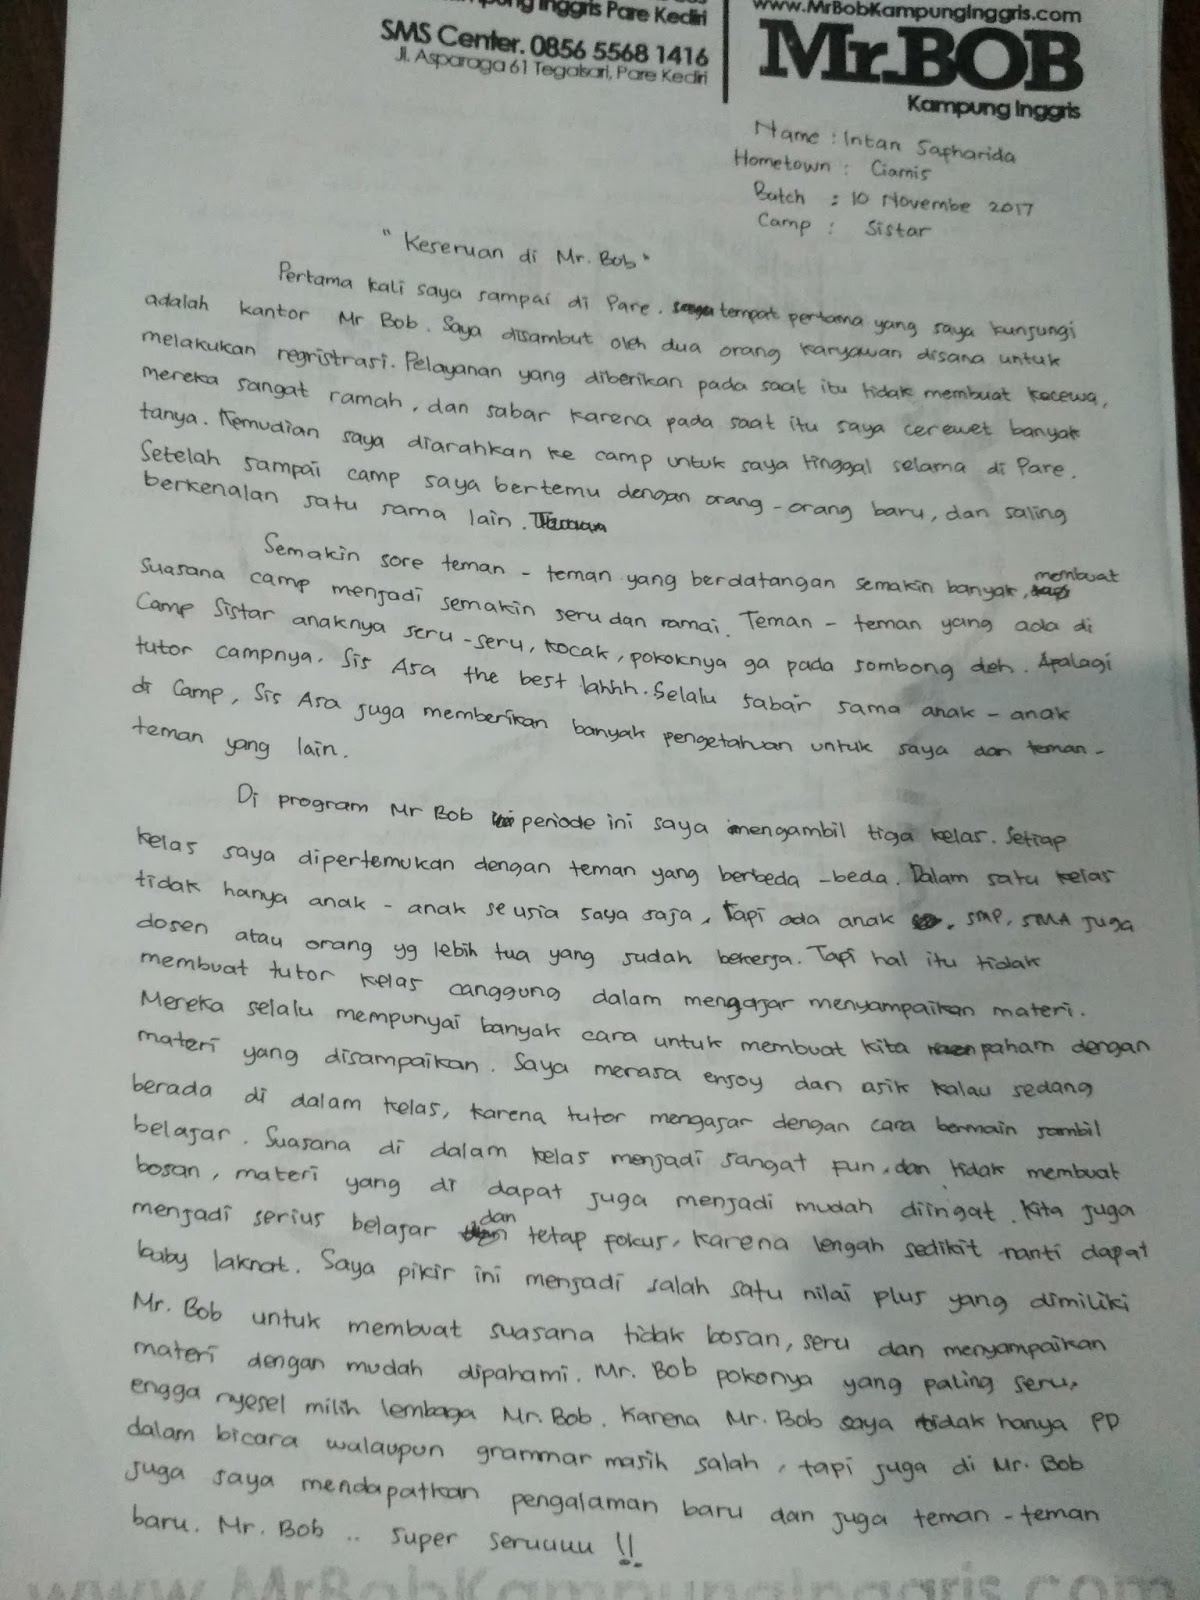 Kampung Inggris Pare Kediri
SMS Center. 0856 5568 1416
Jl. Asparaga 61 Tegalsari, Pare Kediri
www.MrBobKampungInggris.com
Mr.BOB
Kampung Inggris
Name : Intan Sapharida
Hometown : Ciamis
Batch : 10 Novembe 2017
Camp : Sistar
" Keseruan di Mr. Bob "
Pertama kali saya sampai di Pare. tempat pertama yang saya kunjungi
adalah kantor Mr Bob. Saya disambut oleh dua orang karyawan disana untuk
melakukan regristrasi. Pelayanan yang diberikan pada saat itu tidak membuat kecewa,
mereka sangat ramah, dan sabar karena pada saat itu saya cerewet banyak
tanya. Kemudian saya diarahkan ke camp untuk saya tinggal selama di Pare.
Setelah sampai camp saya bertemu dengan orang - orang baru, dan saling
berkenalan satu sama lain.
Semakin sore teman - teman yang berdatangan semakin banyak, membuat
suasana camp menjadi semakin seru dan ramai. Teman - teman yang ada di
Camp Sistar anaknya seru - seru, kocak, pokoknya ga pada sombong deh. Apalagi
tutor campnya. Sis Asa the best lahhh. Selalu sabar sama anak - anak
di Camp, Sis Asa juga memberikan banyak pengetahuan untuk saya dan teman -
teman yang lain.
Di program Mr Bob periode ini saya mengambil tiga kelas. Setiap
kelas saya dipertemukan dengan teman yang berbeda - beda. Dalam satu kelas
tidak hanya anak - anak seusia saya saja, Tapi ada anak SMP, SMA juga
dosen atau orang yg lebih tua yang sudah bekerja. Tapi hal itu tidak
membuat tutor kelas canggung dalam mengajar menyampaikan materi.
Mereka selalu mempunyai banyak cara untuk membuat kita paham dengan
materi yang disampaikan. Saya merasa enjoy dan asik kalau sedang
berada di dalam kelas, karena tutor mengajar dengan cara bermain sambil
belajar. Suasana di dalam kelas menjadi sangat fun, dan tidak membuat
bosan, materi yang di dapat juga menjadi mudah diingat. Kita juga
menjadi serius belajar dan tetap fokus, karena lengah sedikit nanti dapat
baby laknat. Saya pikir ini menjadi salah satu nilai plus yang dimiliki
Mr. Bob untuk membuat suasana tidak bosan, seru dan menyampaikan
materi dengan mudah dipahami. Mr. Bob pokonya yang paling seru,
engga nyesel milih lembaga Mr. Bob. Karena Mr. Bob saya tidak hanya PD
dalam bicara walaupun grammar masih salah, tapi juga di Mr. Bob
juga saya mendapatkan pengalaman baru dan juga teman - teman
baru. Mr. Bob .. super seruuuu !!
www.MrBobKampungInggris.com